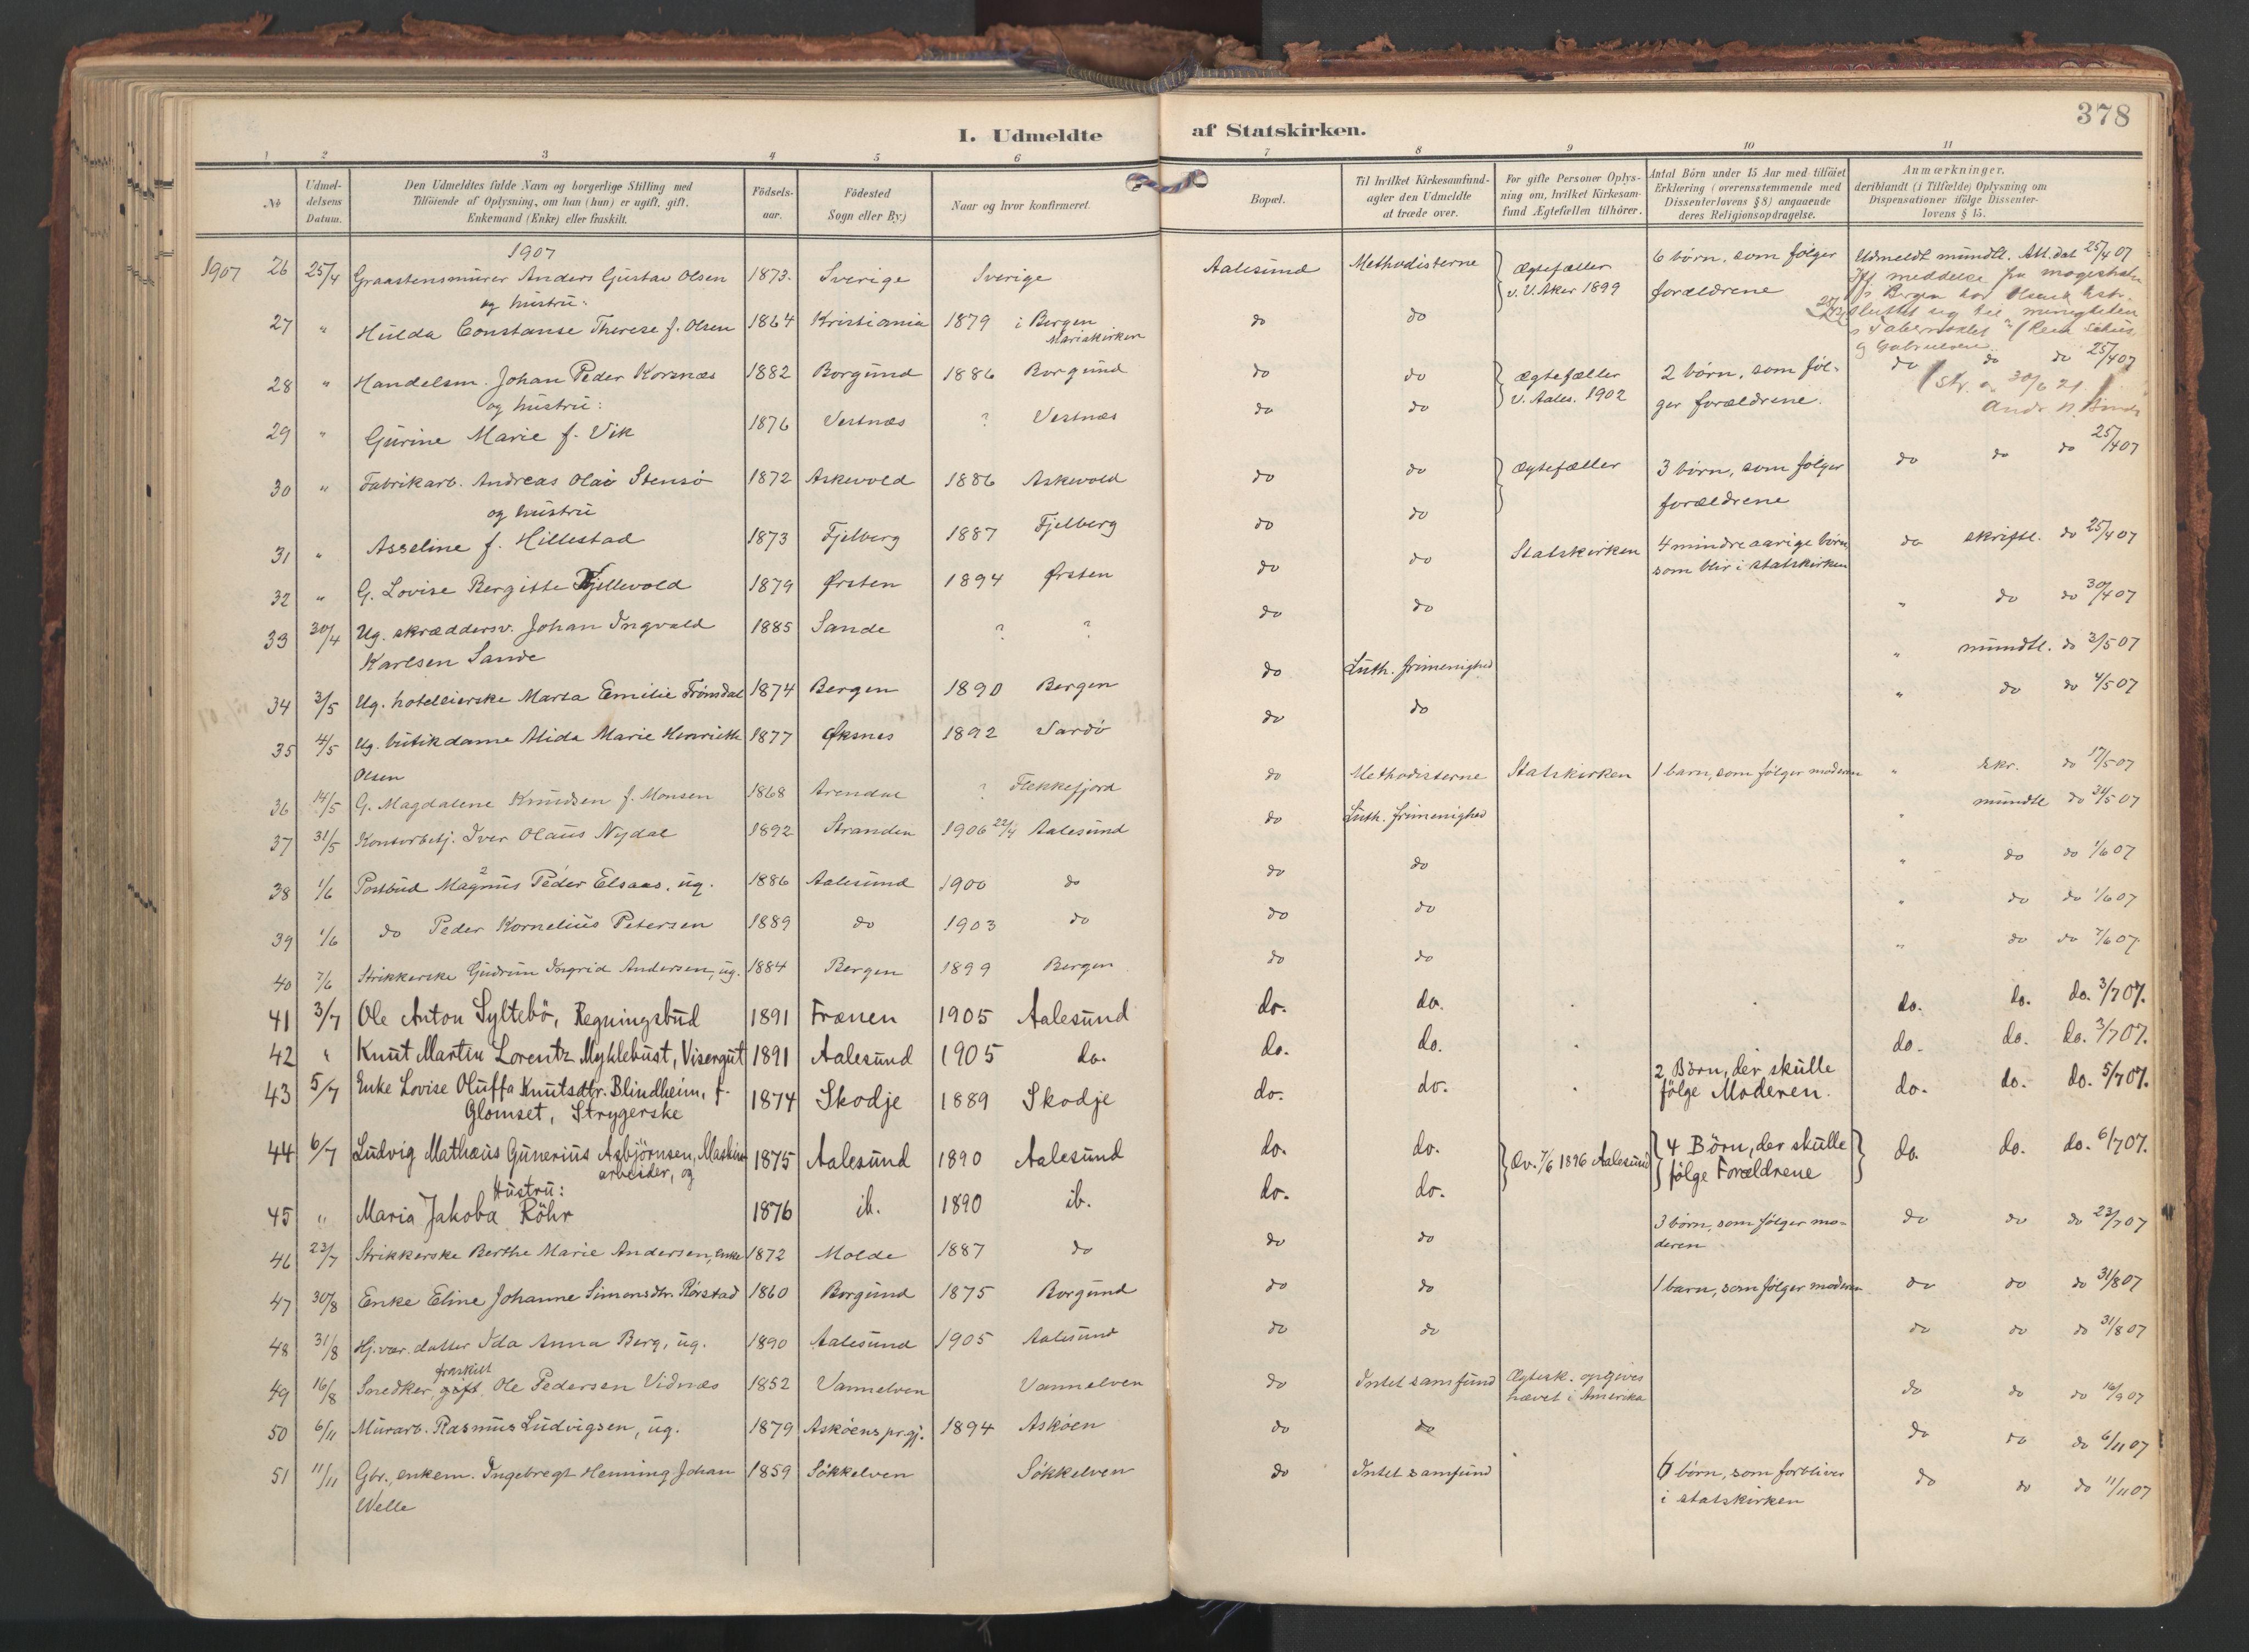 378
I. Udmeldte af Statskirken.
1 2 3 4 5 6 7 8 9 10 11
No
Udmel-
delsens
Datum.
Den Udmeldtes fulde Navn og borgerlige Stilling med
Tilföiende af Oplysning, om han (hun) er ugift, gift,
Enkemand (Enke) eller fraskilt.
Födsels-
aar.
Födested
Sogn eller By)
Naar og hvor konfirmeret.
Bopæl.
Til hvilket Kirkesamfund-
agter den Udmeldte
at træde over.
For gifte Personer Oplys-
ning om, hvilket Kirkesam-
fund Ægtefællen tilhörer.
Antal Börn under 15 Aar med tilföiet
Erklæring (overensstemmende med
Dissenterlovens § 8) angaaende
deres Religionsopdragelse.
Anmærkninger,
deriblandt (i Tilfælde) Oplysning om
Dispensationer ifölge Dissenter-
lovens § 15.
1907
1907 26 25/4 Graastensmurer Anders Gustav Olsen 1873. Sverige Sverige Aalesund Methodisterne Ægtefæller v. V. Aker 1899 6 børn, som følger forældrene Udmeldt mundtl. Att. dat 25/4 07
og hustru:
27 " Hulda Constanse Therese f. Olsen 1864 Kristiania 1879 i Bergen Mariakirken do do
28 " Handelsm. Johan Peder Korsnæs 1882 Borgund 1886 Borgund do do Ægtefæller v. Aales. 1902 2 børn, som føl- ger forældrene. do do do 25/4 07
og hustru:
29 " Gurine Marie f. Vik 1876 Vestnæs ? Vestnæs do do
30 " Fabrikarb. Andreas Olai Stensö 1872 Askevold 1886 Askevold do do Ægtefæller 3 børn, som følger forældrene do do do 25/4 07
og hustru
31 " Asseline f. Hillestad 1873 Fjelberg 1887 Fjelberg do do
32 " G. Lovise Bergitte Fjellevold 1879 Ørsten 1894 Ørsten do do Statskirken 4 mindreaarige børn, som blir i statskirken do skriftl. do 25/4 07
33 30/4 Ug. skræddersv. Johan Ingvald 1885 Sande ? ? do do " do do 30/4 07
Karlsen Sande
34 3/5 Ug. hotelleierske Marta Emilie Trönsdal 1874 Bergen 1890 Bergen do Luth. frimenighed " mundtl. do 3/5 07
35 4/5 Ug. butikdame Alida Marie Henriette 1877 Øksnes 1892 Vardö do do " do do 4/5 07
Olsen
36 14/5 G. Magdalene Knudsen f. Monsen 1868 Arendal ? Flekkefjord do Methodisterne Statskirken 1 barn, som følger moderen " skr. do 17/5 07
37 31/5 Kontorbetj. Iver Olaus Nydal 1892 Stranden 1906 22/4 Aalesund do Luth. frimenighed " mundtl do 31/5 07
38 1/6 Postbud Magnus Peder Elsaas, ug. 1886 Aalesund 1900 do do do " do do 1/6 07
39 1/6 do Peder Kornelius Petersen 1889 do 1903 do do do " do do 1/6 07
40 7/6 Strikkerske Gudrun Ingrid Andersen, ug. 1884 Bergen 1899 Bergen do do " do do 7/6 07
41 3/7 Ole Anton Syltebö, Regningsbud 1891 Frænen 1905 Aalesund do. do. do. do. do. 3/7 07.
42 " Knut Martin Lorentz Myklebust, Visergut 1891 Aalesund 1905 do. do. do. do. do. do. 3/7 07.
43 5/7 Enke Lovise Oluffa Knutsdtr. Blindheim, f. 1874 Skodje 1889 Skodje do. do. 2 Börn, der skulle fölge Moderen. do. do. do. 5/7 07.
Glomset, Strygerske
44 6/7 Ludvig Mathæus Gunerius Asbjörnsen, Maskin- 1875 Aalesund 1890 Aalesund do. do. Æv. 7/6 1896 Aalesund 4 Börn, der skulle fölge Forældrene do. do. do. 6/7 07.
arbeider, og
Hustru:
45 " Maria Jakoba Röhr 1876 ib. 1890 ib. do. do.
46 23/7 Strikkerske Berthe Marie Andersen, enke 1872 Molde 1887 do do do 3 børn, som følger mo- deren do do do 23/7 07
47 30/8 Enke Eline Johanne Simonsdtr. Rörstad 1860 Borgund 1875 Borgund do do 1 barn, som følger moderen do do do 31/8 07
48 31/8 Hj.vær. datter Ida Anna Berg, ug. 1890 Aalesund 1905 Aalesund do do do do do 31/8 07
fraskilt
49 16/8 Snedker, gift. Ole Pedersen Vidnæs 1852 Vannelven Vannelven do Intet samfund Ægtesk. opgives hævet i Amerika do do do 16/9 07
50 6/11 Murarb. Rasmus Ludvigsen, ug. 1879 Askøens prgj. 1894 Askøen do do do do do 6/11 07
51 11/11 Gbr., enkem. Ingebregt Henning Johan 1859 Sökkelven Sökkelven do Intet samfund 6 børn, som forbliver i statskirken do do do 11/11 07
Welle